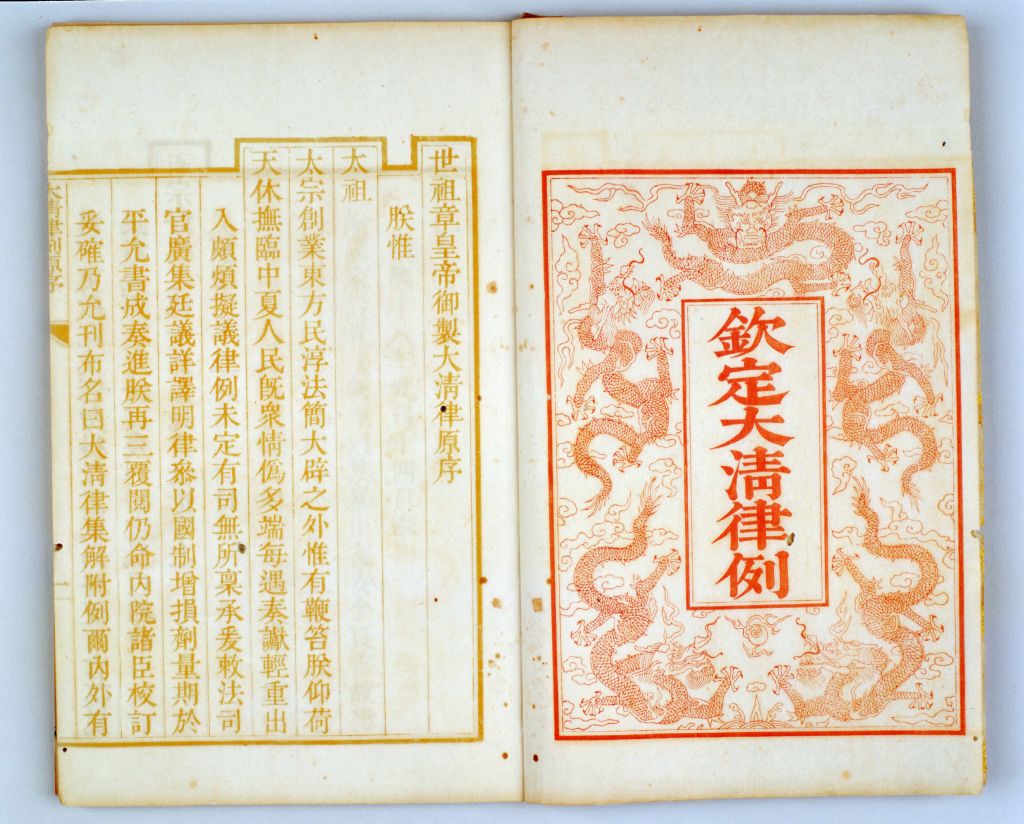 欽定大淸律例
世祖章皇帝御製大淸律原序
朕惟
太祖
太宗創業東方民淳法簡大辟之外惟有鞭笞朕仰荷
天休撫臨中夏人民旣衆情僞多端每遇奏讞輕重出
入頗煩擬議律例未定有司無所稟承爰敕法司
官廣集廷議詳譯明律叅以國制增損劑量期於
平允書成奏進朕再三覆閱仍命內院諸臣校訂
妥確乃允刊布名曰大淸律集解附例爾內外有